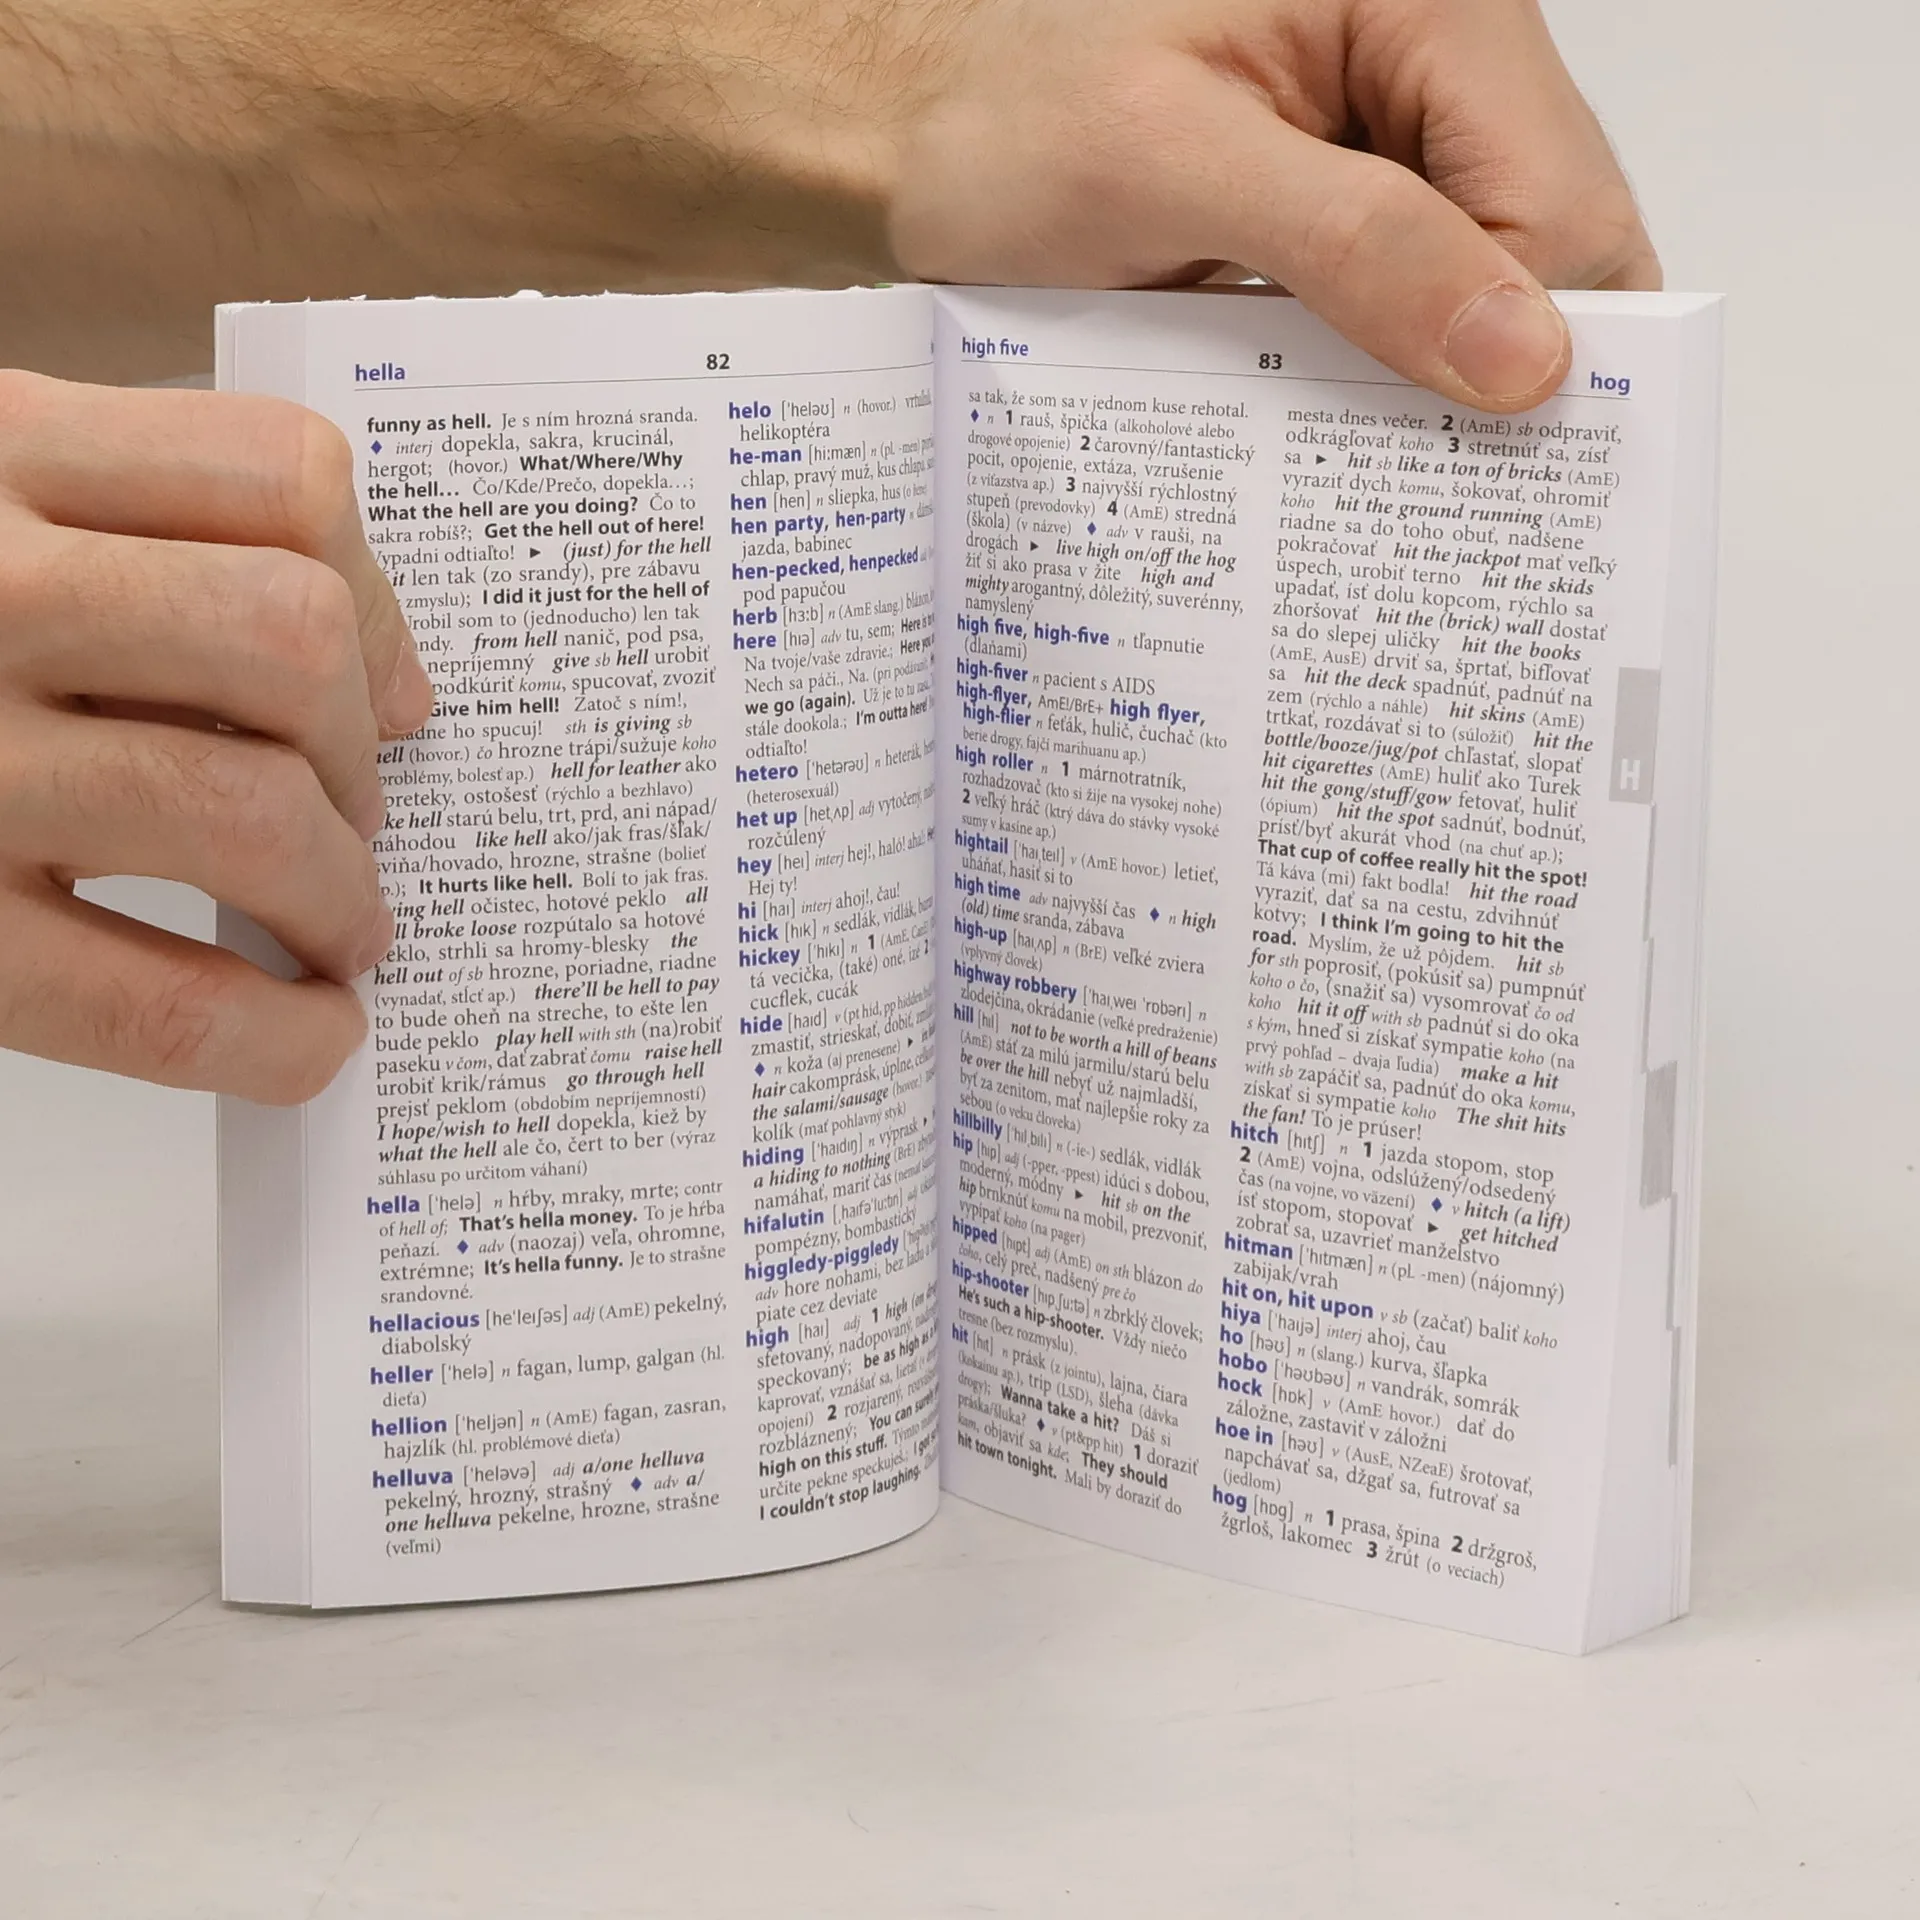 hella
82
funny as hell. Je s ním hrozná sranda.
♦ interj dopekla, sakra, krucinál,
hergot; (hovor.) What/Where/Why
the hell... Čo/Kde/Prečo, dopekla...;
What the hell are you doing? Čo to
sakra robíš?; Get the hell out of here!
Vypadni odtiaľto! ► (just) for the hell
it len tak (zo srandy), pre zábavu
zmyslu); I did it just for the hell of
Urobil som to (jednoducho) len tak
from hell nanič, pod psa,
nepríjemný give sb hell urobiť
podkúriť komu, spucovať, zvoziť
Give him hell! Zatoč s ním!,
ho spucuj! sth is giving sb
hell (hovor.) čo hrozne trápi/sužuje koho
problémy, bolesť ap.) hell for leather ako
preteky, ostošesť (rýchlo a bezhlavo)
hell starú belu, trt, prd, ani nápad/
náhodou like hell ako/jak fras/šľak/
sviňa/hovado, hrozne, strašne (bolieť
It hurts like hell. Bolí to jak fras.
hell očistec, hotové peklo all
broke loose rozpútalo sa hotové
peklo, strhli sa hromy-blesky the
hell out of sb hrozne, poriadne, riadne
(vynadať, stĺcť ap.) there'll be hell to pay
to bude oheň na streche, to ešte len
bude peklo play hell with sth (na)robiť
paseku v čom, dať zabrať čomu raise hell
urobiť krik/rámus go through hell
prejsť peklom (obdobím nepríjemností)
I hope/wish to hell dopekla, kiež by
what the hell ale čo, čert to ber (výraz
súhlasu po určitom váhaní)
hella ['helə] n hŕby, mraky, mrte; contr
of hell of; That's hella money. To je hŕba
peňazí. ♦ adv (naozaj) veľa, ohromne,
extrémne; It's hella funny. Je to strašne
srandovné.
hellacious [he'leɪʃəs] adj (AmE) pekelný,
diabolský
heller ['helə] n fagan, lump, galgan (hl.
dieťa)
hellion ['heljən] n (AmE) fagan, zasran,
hajzlík (hl. problémové dieťa)
helluva ['heləvə] adj a/one helluva
pekelný, hrozný, strašný ♦ adv a/
one helluva pekelne, hrozne, strašne
(veľmi)
helo ['heləʊ] n (hovor.)
helikoptéra
he-man [hi:mæn] n (pl. -men)
chlap, pravý muž, kus chlapa,
hen [hen] n sliepka, hus
hen party, hen-party n
jazda, babinec
hen-pecked, henpecked
pod papučou
herb [hɜ:b] n (AmE slang.)
here [hɪə] adv tu, sem;
Na tvoje/vaše zdravie.;
Nech sa páči., Na.
we go (again). Už je to tu
stále dookola.; I'm outta here!
odtiaľto!
hetero ['hetərəʊ] n heterák,
(heterosexuál)
het up [het,ʌp] adj vytočený,
rozčúlený
hey [heɪ] interj hej!, haló!
Hej ty!
hi [haɪ] interj ahoj!, čau!
hick [hɪk] n sedlák, vidlák,
hickey ['hɪkɪ] n 1 (AmE,
tá vecička, (také) oné,
cucflek, cucák
hide [haɪd] v (pt hid, pp hidden
zmastiť, strieskať, dobiť,
♦ n koža (aj prenesene) ►
hair cakomprásk, úplne,
the salami/sausage (hovor.)
kolík (mať pohlavný styk)
hiding ['haɪdɪŋ] n výprask ►
a hiding to nothing (BrE)
namáhať, mariť čas
hifalutin [,haɪfə'lu:tɪn]
pompézny, bombastický
higgledy-piggledy
adv hore nohami, bez
piate cez deviate
high [haɪ] adj 1 high
sfetovaný, nadopovaný,
speckovaný; be as high as a
kaprovať, vznášať sa,
opojení) 2 rozjarený,
rozbláznený; You can
high on this stuff.
určite pekne speckuješ.; I
I couldn't stop laughing.
high five
83
hog
sa tak, že som sa v jednom kuse rehotal.
♦ n 1 rauš, špička (alkoholové alebo
drogové opojenie) 2 čarovný/fantastický
pocit, opojenie, extáza, vzrušenie
(z víťazstva ap.) 3 najvyšší rýchlostný
stupeň (prevodovky) 4 (AmE) stredná
(škola) (v názve) ♦ adv v rauši, na
drogách ► live high on/off the hog
žiť si ako prasa v žite high and
mighty arogantný, dôležitý, suverénny,
namyslený
high five, high-five n tľapnutie
(dlaňami)
high-fiver n pacient s AIDS
high-flyer, AmE!/BrE+ high flyer,
high-flier n feťák, hulič, čuchač (kto
berie drogy, fajčí marihuanu ap.)
high roller n 1 márnotratník,
rozhadzovač (kto si žije na vysokej nohe)
2 veľký hráč (ktrý dáva do stávky vysoké
sumy v kasíne ap.)
hightail ['haɪ,teɪl] v (AmE hovor.) letieť,
uháňať, hasiť si to
high time adv najvyšší čas ♦ n high
(old) time sranda, zábava
high-up [haɪ,ʌp] n (BrE) veľké zviera
(vplyvný človek)
highway robbery ['haɪ,weɪ 'rɒbərɪ] n
zlodejčina, okrádanie (veľké predraženie)
hill [hɪl] not to be worth a hill of beans
(AmE) stáť za milú jarmilu/starú belu
be over the hill nebyť už najmladší,
byť za zenitom, mať najlepšie roky za
sebou (o veku človeka)
hillbilly ['hɪl,bɪlɪ] n (-ie-) sedlák, vidlák
hip [hɪp] adj (-pper, -ppest) idúci s dobou,
moderný, módny ► hit sb on the
hip brnknúť komu na mobil, prezvoniť,
vypípať koho (na pager)
hipped [hɪpt] adj (AmE) on sth blázon do
čoho, celý preč, nadšený pre čo
hip-shooter [hɪp,ʃu:tə] n zbrklý človek;
He's such a hip-shooter. Vždy niečo
tresne (bez rozmyslu).
hit [hɪt] n prásk (z jointu), lajna, čiara
(kokaínu ap.), trip (LSD), šleha (dávka
drogy); Wanna take a hit? Dáš si
práska/šluka? ♦ v (pt&pp hit) 1 doraziť
kam, objaviť sa kde; They should
hit town tonight. Mali by doraziť do
mesta dnes večer. 2 (AmE) sb odpraviť,
odkrágľovať koho 3 stretnúť sa, zísť
sa ► hit sb like a ton of bricks (AmE)
vyraziť dych komu, šokovať, ohromiť
koho hit the ground running (AmE)
riadne sa do toho obuť, nadšene
pokračovať hit the jackpot mať veľký
úspech, urobiť terno hit the skids
upadať, ísť dolu kopcom, rýchlo sa
zhoršovať hit the (brick) wall dostať
sa do slepej uličky hit the books
(AmE, AusE) drviť sa, šprtať, bifľovať
sa hit the deck spadnúť, padnúť na
zem (rýchlo a náhle) hit skins (AmE)
trtkať, rozdávať si to (súložiť) hit the
bottle/booze/jug/pot chľastať, slopať
hit cigarettes (AmE) huliť ako Turek
hit the gong/stuff/gow fetovať, huliť
(ópium) hit the spot sadnúť, bodnúť,
prísť/byť akurát vhod (na chuť ap.);
That cup of coffee really hit the spot!
Tá káva (mi) fakt bodla! hit the road
vyraziť, dať sa na cestu, zdvihnúť
kotvy; I think I'm going to hit the
road. Myslím, že už pôjdem. hit sb
for sth poprosiť, (pokúsiť sa) pumpnúť
koho o čo, (snažiť sa) vysomrovať čo od
koho hit it off with sb padnúť si do oka
s kým, hneď si získať sympatie koho (na
prvý pohľad – dvaja ľudia) make a hit
with sb zapáčiť sa, padnúť do oka komu,
získať si sympatie koho The shit hits
the fan! To je prúser!
hitch [hɪtʃ] n 1 jazda stopom, stop
2 (AmE) vojna, odslúžený/odsedený
čas (na vojne, vo väzení) ♦ v hitch (a lift)
ísť stopom, stopovať ► get hitched
zobrať sa, uzavrieť manželstvo
hitman ['hɪtmæn] n (pl. -men) (nájomný)
zabijak/vrah
hit on, hit upon v sb (začať) baliť koho
hiya ['haɪjə] interj ahoj, čau
ho [həʊ] n (slang.) kurva, šľapka
hobo ['həʊbəʊ] n vandrák, somrák
hock [hɒk] v (AmE hovor.) dať do
záložne, zastaviť v záložni
hoe in [həʊ] v (AusE, NZeaE) šrotovať,
napchávať sa, džgať sa, futrovať sa
(jedlom)
hog [hɒg] n 1 prasa, špina 2 držgroš,
žgrloš, lakomec 3 žrút (o veciach)
H